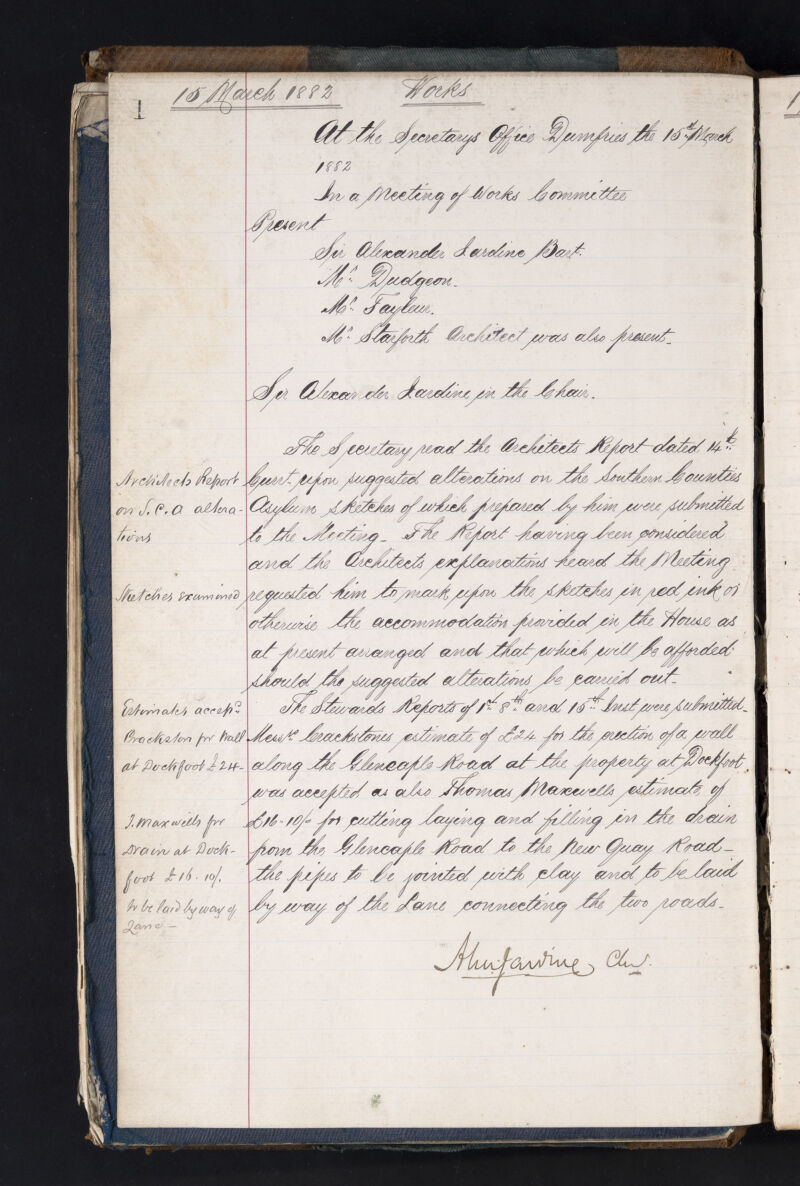 1
15 March 1882 Works
At the Secretarys Office Dumfries the 15th March
1882
In a Meeting of Works Committee
Present
Sir Alexander Jardine Bart.
Mr. Dudgeon.
Mr. Tayleur.
Mr. Starforth Architect was also present.
Sir Alexander Jardine in the Chair.
Architects Report
on S.C.A altera-
tions
The Secretary read the Architects Report dated 14th
Curt. upon suggested alterations on the Southern Counties
Asylum sketches of which prepared by him were submitted
to the Meeting. The Report having been considered
and the Architects explanations heard the Meeting
Sketches examined
requested him to mark upon the sketches in red ink or
otherwise the accommodation provided in the House as
at present arranged and that which will be afforded
should the suggested alterations be carried out.
Estimates accepd.
Crackston for Wall
at Dockfoot £24-
The Stewards Reports of 1st 8th and 15th Inst were submitted.
Messrs Crackstons estimate of £24 for the erection of a wall
along the Glencaple Road at the property at Dockfoot
was accepted as also Thomas Maxwells estimate of
T. Maxwells for
Drain at Dock-
foot £16. 10/.
to be laid by way of
Lane -
£16-10/- for cutting laying and filling in the drain
from the Glencaple Road to the New Quay Road -
the pipes to be jointed with clay and to be laid
by way of the Lane connecting the two roads.
Alexr Jardine Chn.